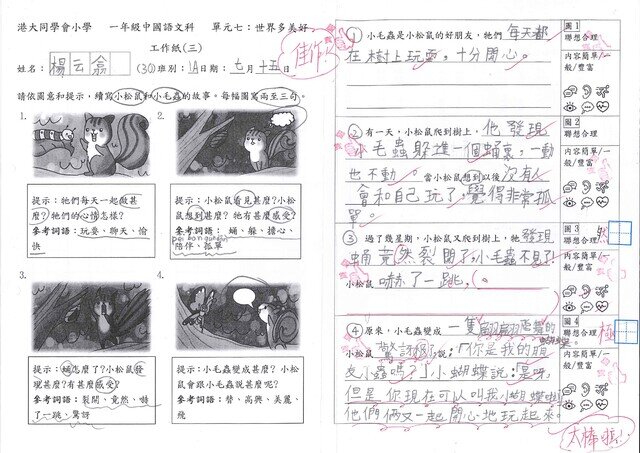 港大同學會小學 一年級中國語文科 單元七:世界多美好
工作紙(三)
佳作
姓名: 楊云翕 (30) 班別: 1A 日期: 七月十五日
請依圖意和提示,續寫小松鼠和小毛蟲的故事。每幅圖寫兩至三句。
1.
2.
提示:牠們每天一起做甚麼?牠們的心情怎樣?
參考詞語:玩耍、聊天、愉快
提示:小松鼠看見甚麼?小松鼠想到甚麼?牠有甚麼感受?
參考詞語: 蛹、躲、擔心、陪伴、孤單
3.
4.
提示:蛹怎麼了?小松鼠發現甚麼?有甚麼感受?
參考詞語:裂開、竟然、嚇了一跳、驚訝
提示:小毛蟲變成甚麼?小松鼠會跟小毛蟲說甚麼呢?
參考詞語:替、高興、美麗、飛
① 小毛蟲是小松鼠的好朋友,牠們 每天都
在樹上玩耍,十分開心。
圖1
聯想合理
內容簡單/一般/豐富
② 有一天,小松鼠爬到樹上,他發現
小毛蟲躲進一個蛹裏,一動
也不動。當小松鼠想到以後 沒有人
會和自己玩了,覺得非常孤
單。
圖2
聯想合理
內容簡單/一般/豐富
③ 過了幾星期,小松鼠又爬到樹上,牠發現
蛹竟然裂開了,小毛蟲不見了!
小松鼠 嚇了一跳。
圖3
聯想合理
然
內容簡單/一般/豐富
④ 原來,小毛蟲變成 一隻翩翩起舞的
小松鼠 驚訝極了 說:「你是我的朋
友小蟲嗎?」小蝴蝶說:「是呀,
但是你現在可以叫我小蝴蝶啦!」
他們倆又一起開心地玩起來。
圖4
聯想合理
極
內容簡單/一般/豐富
太棒啦!